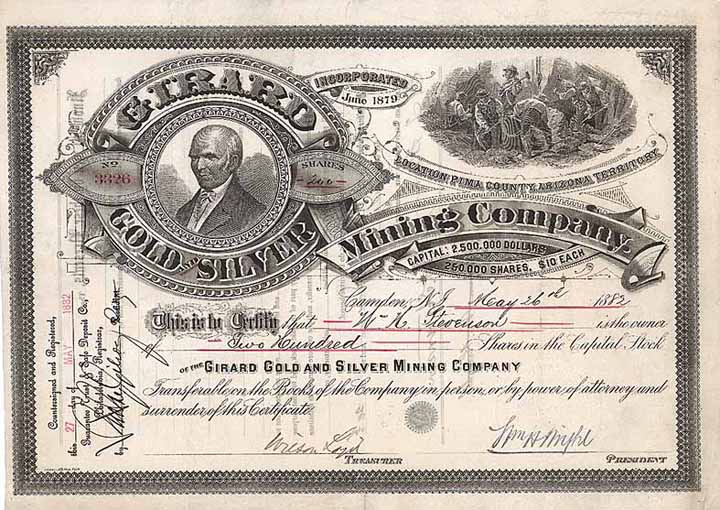 GIRARD
GOLD AND SILVER
Mining Company.
INCORPORATED
June 1879
LOCATION PIMA COUNTY, ARIZONA TERRITORY.
No.
3326
SHARES
200
CAPITAL: 2,500,000 DOLLARS.
250,000 SHARES, $10 EACH
Camden, N.J. May 26th 1882
This is to Certify that Wm H. Stevenson is the owner
of Two Hundred Shares in the Capital Stock
OF THE GIRARD GOLD AND SILVER MINING COMPANY
Transferable on the Books of the Company in person, or by power of attorney and
surrender of this Certificate.
Wilson Loyd
TREASURER
PRESIDENT
Countersigned and Registered,
this 27 day of MAY 1882
Guarantee Trust & Safe Deposit Co.,
Philadelphia, Registrars,
by